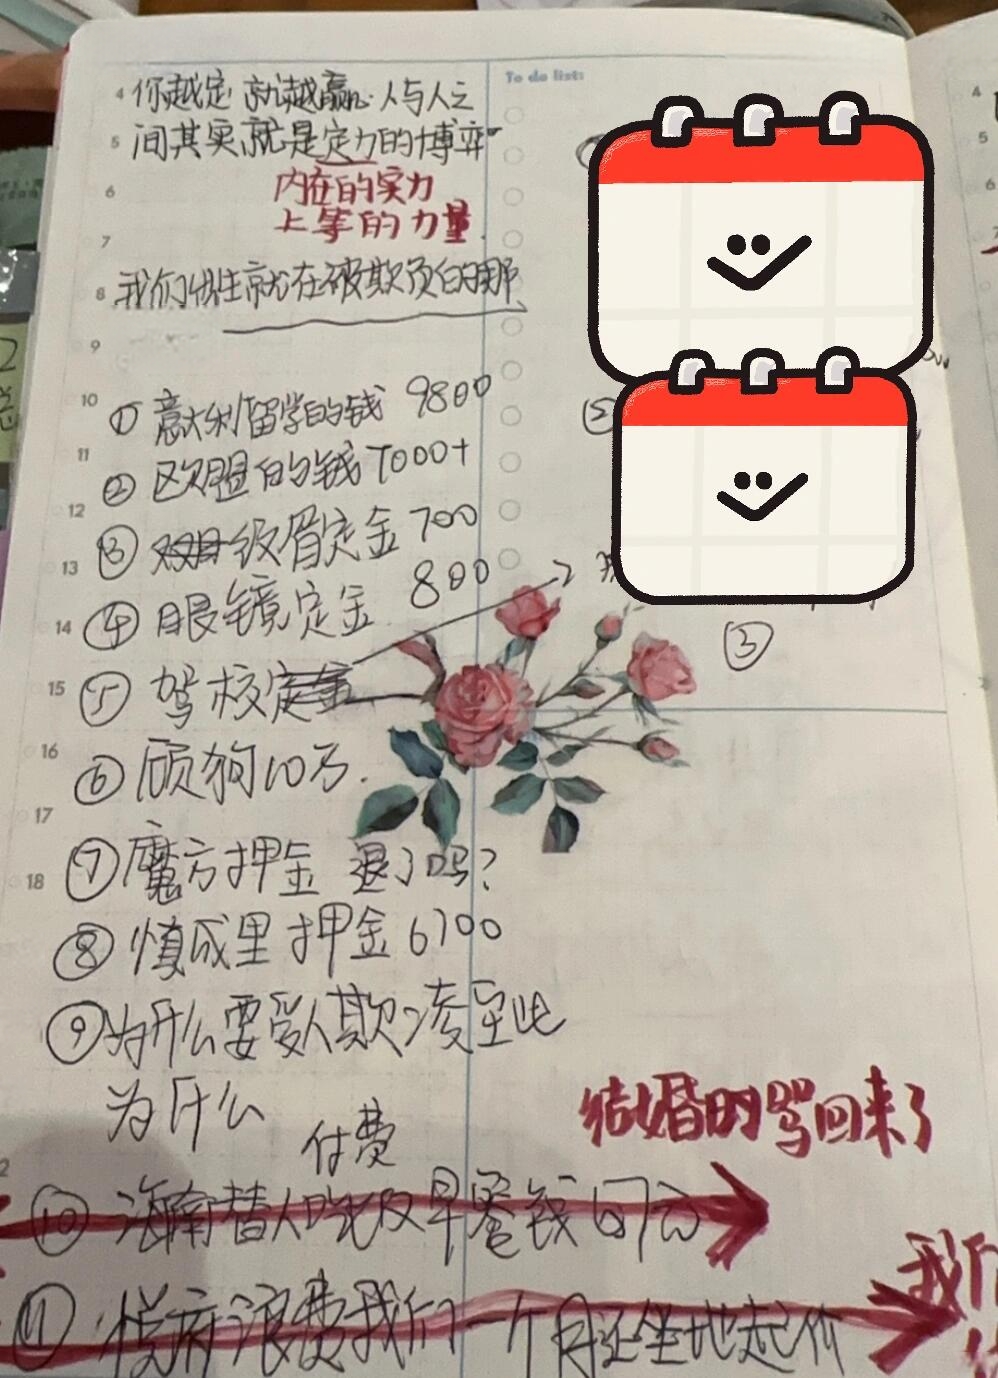 你越定 就越赢 人与人之
间其实就是定力的博弈
内在的实力
上等的力量
我们性就在被欺负的那
To do list:
4
5
6
7
8
9
10
11
12
13
14
15
16
17
18
① 意大利留学的钱 9800
② 欧盟的钱 7000+
③ 眉定金 700
④ 眼镜定金 800
⑤ 驾校定金
⑥ 顾狗10万.
⑦ 魔方押金 退了吗?
⑧ 慎成里押金 6700
⑨ 为什么要受人欺凌至此
为什么
付费
结婚的骂回来了
⑩ 海南替人吃及早餐钱 67元
⑪ 悦府浪费我们一个月还坐地起价
②
③
4
5
6